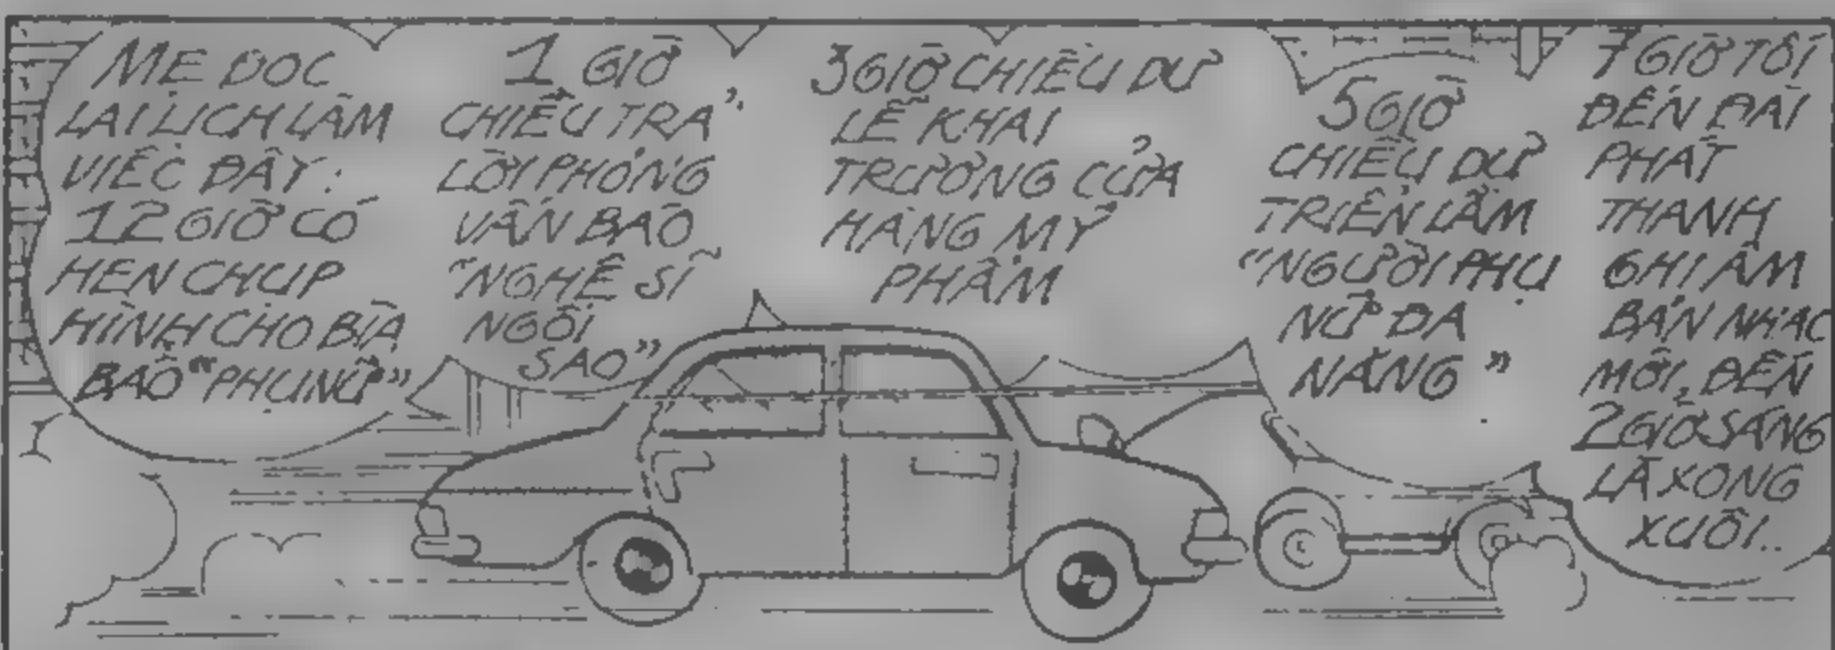 MẸ ĐỌC
LẠI LỊCH LÀM
VIỆC ĐÂY:
12 GIỜ CÓ
HẸN CHỤP
HÌNH CHO BÌA
BÁO "PHỤ NỮ"
1 GIỜ
CHIỀU TRẢ
LỜI PHỎNG
VẤN BÁO
"NGHỆ SĨ
NGÔI
SAO"
3 GIỜ CHIỀU DỰ
LỄ KHAI
TRƯƠNG CỬA
HÀNG MỸ
PHẨM
5 GIỜ
CHIỀU DỰ
TRIỂN LÃM
"NGƯỜI PHỤ
NỮ ĐA
NĂNG"
7 GIỜ TỐI
ĐẾN ĐÀI
PHÁT
THANH
GHI ÂM
BẢN NHẠC
MỚI, ĐẾN
2 GIỜ SÁNG
LÀ XONG
XUÔI..